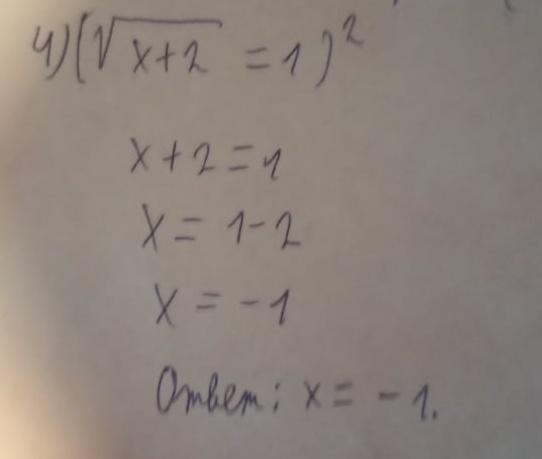 4) (√x+2 = 1)²
x+2=1
x= 1-2
x = -1
Ответ: x = -1.